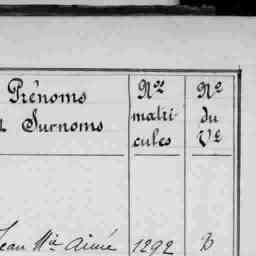 Prénoms
Surnoms
Nos
matri-
cules
No
du
Ve
Jean Mie Aimée 1292